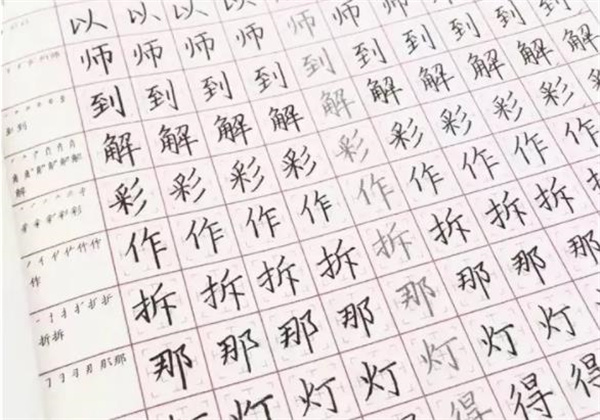 以 以 以 以
师 师 师 师 师 师 师
到 到 到 到 到 到 到 到 到 到 到
解 解 解 解 解 解 解 解 解 解 解
彩 彩 彩 彩 彩 彩 彩 彩 彩 彩
作 作 作 作 作 作 作 作 作
拆 拆 拆 拆 拆 拆 拆 拆 拆
那 那 那 那 那 那 那 那
灯 灯 灯 灯 灯 灯 灯
得 得 得